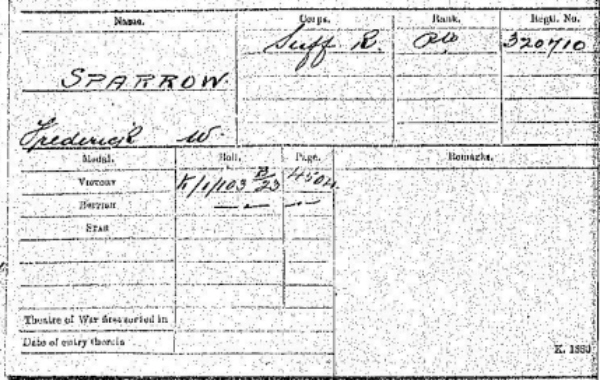 Name. Corps. Rank. Regtl. No.
SPARROW. Suff R. Pte 320710
Frederick W
Medal. Roll. Page. Remarks.
VICTORY K/1/103 B/23 4504.
BRITISH —„— —„—
STAR
Theatre of War first served in
Date of entry therein
K. 1380